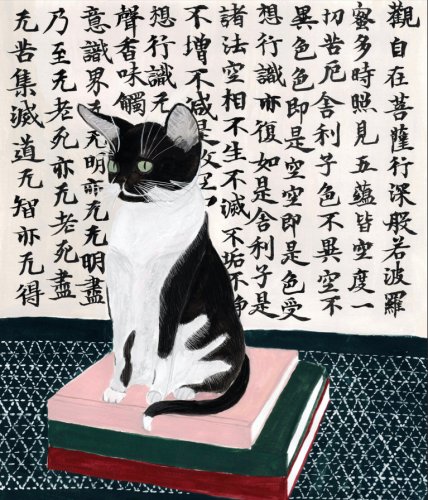 觀自在菩薩行深般若波羅
蜜多時照見五蘊皆空度一
切苦厄舍利子色不異空不
異色色即是空空即是色受
想行識亦復如是舍利子是
諸法空相不生不滅不垢不
不增不減是
想行識无
聲香味觸
意識界无无明亦无无明盡
乃至无老死亦无老死盡
无苦集滅道无智亦无得